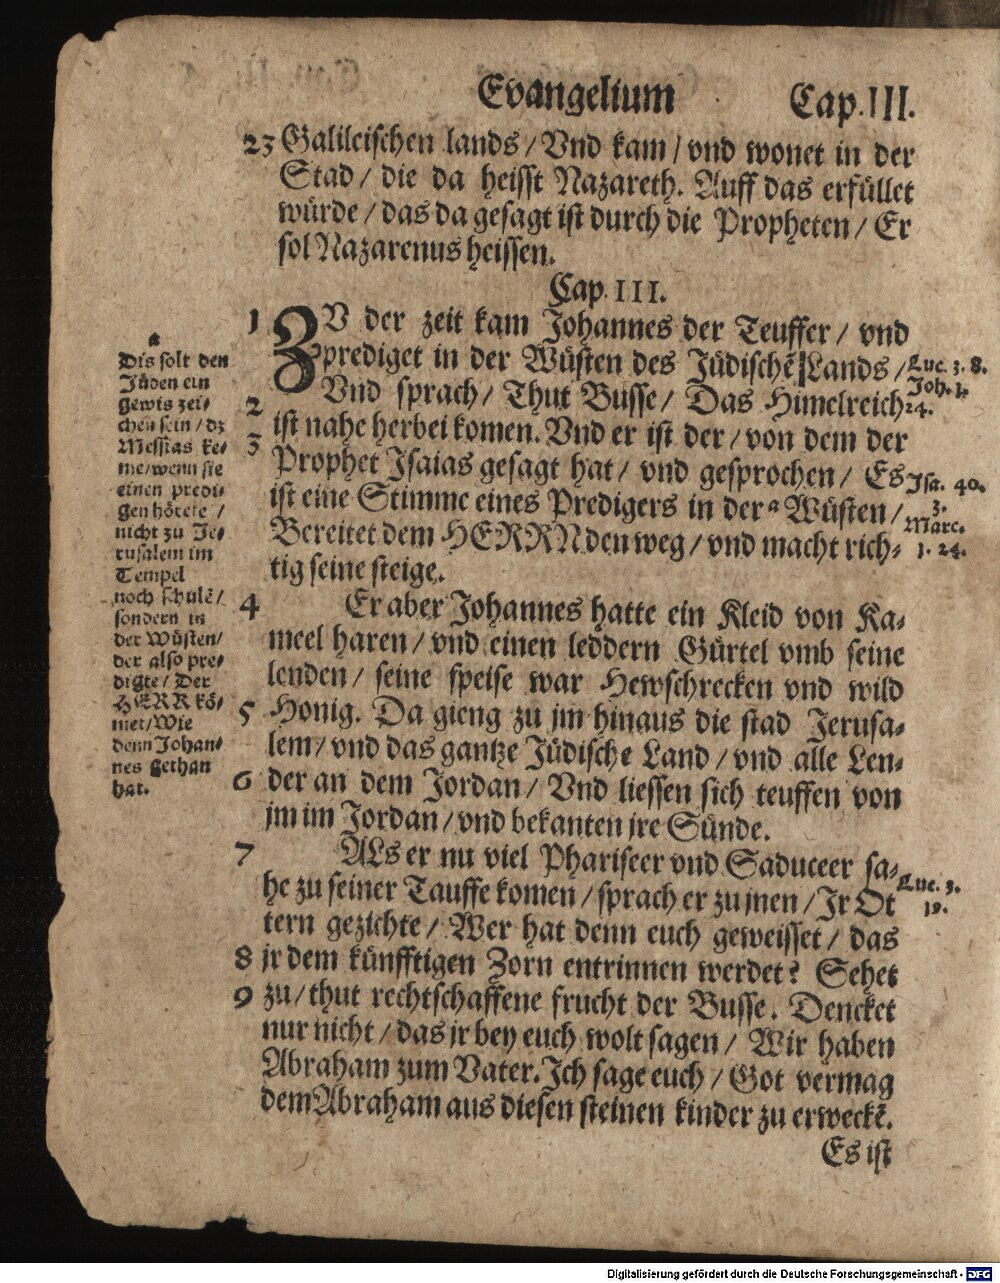 Evangelium Cap. III.
23 Galileischen lands / Vnd kam / vnd wonet in der
Stad / die da heisst Nazareth. Auff das erfüllet
würde / das da gesagt ist durch die Propheten / Er
sol Nazarenus heissen.
Cap. III.
1 ZV der zeit kam Johannes der Teuffer / vnd
prediget in der Wüsten des Jüdischē Lands /
2 Vnd sprach / Thut Busse / Das Himelreich
3 ist nahe herbei komen. Vnd er ist der / von dem der
Prophet Isaias gesagt hat / vnd gesprochen / Es
ist eine Stimme eines Predigers in der a Wüsten /
Bereitet dem HERRN den weg / vnd macht rich-
tig seine steige.
4 Er aber Johannes hatte ein Kleid von Ka-
meel haren / vnd einen leddern Gürtel vmb seine
lenden / seine speise war Hewschrecken vnd wild
5 Honig. Da gieng zu jm hinaus die stad Jerusa-
lem / vnd das gantze Jüdische Land / vnd alle Len-
6 der an dem Jordan / Vnd liessen sich teuffen von
jm im Jordan / vnd bekanten jre Sünde.
7 ALs er nu viel Phariseer vnd Saduceer sa-
he zu seiner Tauffe komen / sprach er zu jnen / Jr Ot
tern gezichte / Wer hat denn euch geweisset / das
8 jr dem künfftigen Zorn entrinnen werdet? Sehet
9 zu / thut rechtschaffene frucht der Busse. Dencket
nur nicht / das jr bey euch wolt sagen / Wir haben
Abraham zum Vater. Ich sage euch / Got vermag
dem Abraham aus diesen steinen kinder zu erweckē.
Es ist
a
Dis solt den
Jüden ein
gewis zei-
chen sein / dz
Messias ke-
me / wenn sie
einen predi-
gen hörete /
nicht zu Je-
rusalem im
Tempel
noch schulē /
sondern in
der Wüsten /
der also pre-
digte / Der
HERR kö-
met / Wie
denn Johan-
nes gethan
hat.
Luc. 3. 8.
Joh. 1.
24.
Isa. 40.
3.
Marc.
1. 24.
Luc. 3.
19.
Digitalisierung gefördert durch die Deutsche Forschungsgemeinschaft - DFG